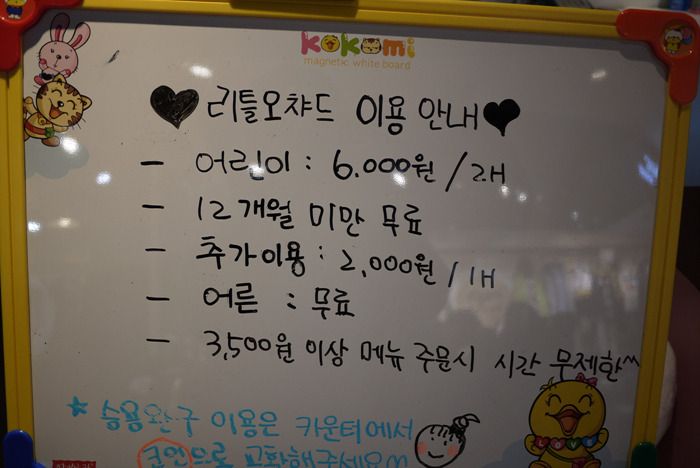 kokomi
magnetic white board
♥ 리틀오챠드 이용 안내 ♥
- 어린이 : 6.000원 / 2H
- 12개월 미만 무료
- 추가이용 : 2,000원 / 1H
- 어른 : 무료
- 3,500원 이상 메뉴 주문시 시간 무제한^^
* 승용완구 이용은 카운터에서
코인으로 교환해주세요^^